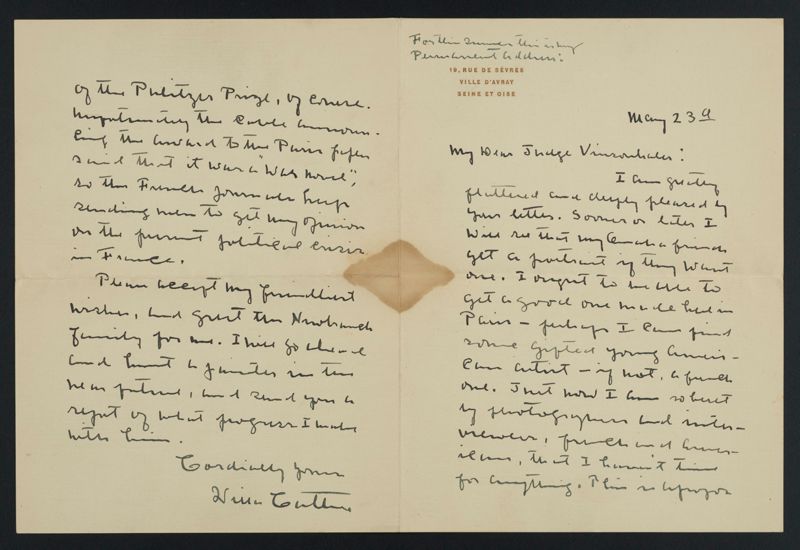 For the summer this is my
Permanent Address:
19, RUE DE SÈVRES
VILLE D'AVRAY
SEINE ET OISE
May 23d
My Dear Judge Vinsonhaler:
I am greatly
flattered and deeply pleased by
your letter. Sooner or later I
will see that my Omaha friends
get a portrait if they want
one. I ought to be able to
get a good one made here in
Paris — perhaps I can find
some gifted young Ameri-
can artist — if not, a french
one. Just now I am so beset
by photographers and inter-
viewers, french and Amer-
icans, that I haven't time
for anything. This is apropos
of the Pulitzer Prize, of course.
Unfortunately the cable announ-
cing the award to the Paris papers
said that it was a "War novel",
so the French journals keep
sending men to get my opinion
on the present political crisis
in France.
Please accept my friendliest
wishes, and greet the Newbranch
family for me. I will go ahead
and hunt a painter in the
near future, and send you a
report of what progress I make
with him.
Cordially yours
Willa Cather